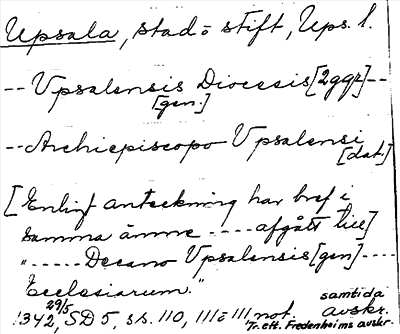 Upsala, stad o stift, Ups. l.
-- Vpsalensis Diocesis [2ggr] --
[gen.]
-- Archiepiscopo Vpsalensi
[dat.]
[Enligt anteckning har bref i
samma ämne ---- afgått till]
"----- Decano Vpsalensis [gen] ----
Ecclesiarum."
29/5 1342, SD 5, ss. 110, 111 o 111 not.
samtida avskr.
Tr. eft. Fredenheims avskr.